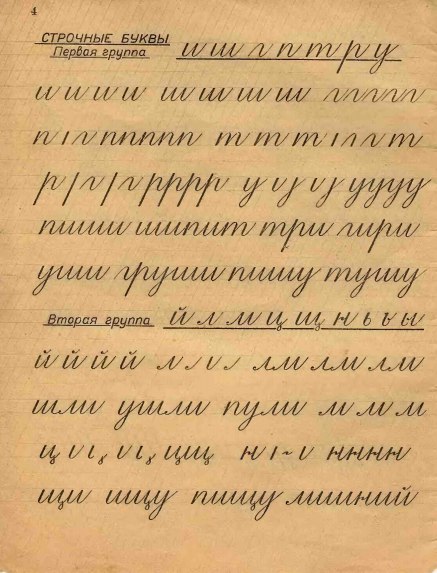 4
СТРОЧНЫЕ БУКВЫ.
Первая группа и ш г п т р у
и и и и ш ш ш ш ш г г г г г
п г п п п п п т т т г т
р р р р р у у у у у
пиши шипит три гири
уши груши пишу тушу
Вторая группа й л м ц щ н ь ъ ы
й й й й л лм лм лм
шли ушли пули м м м
ц ц щ н н н н н
щи ищу пищу линий